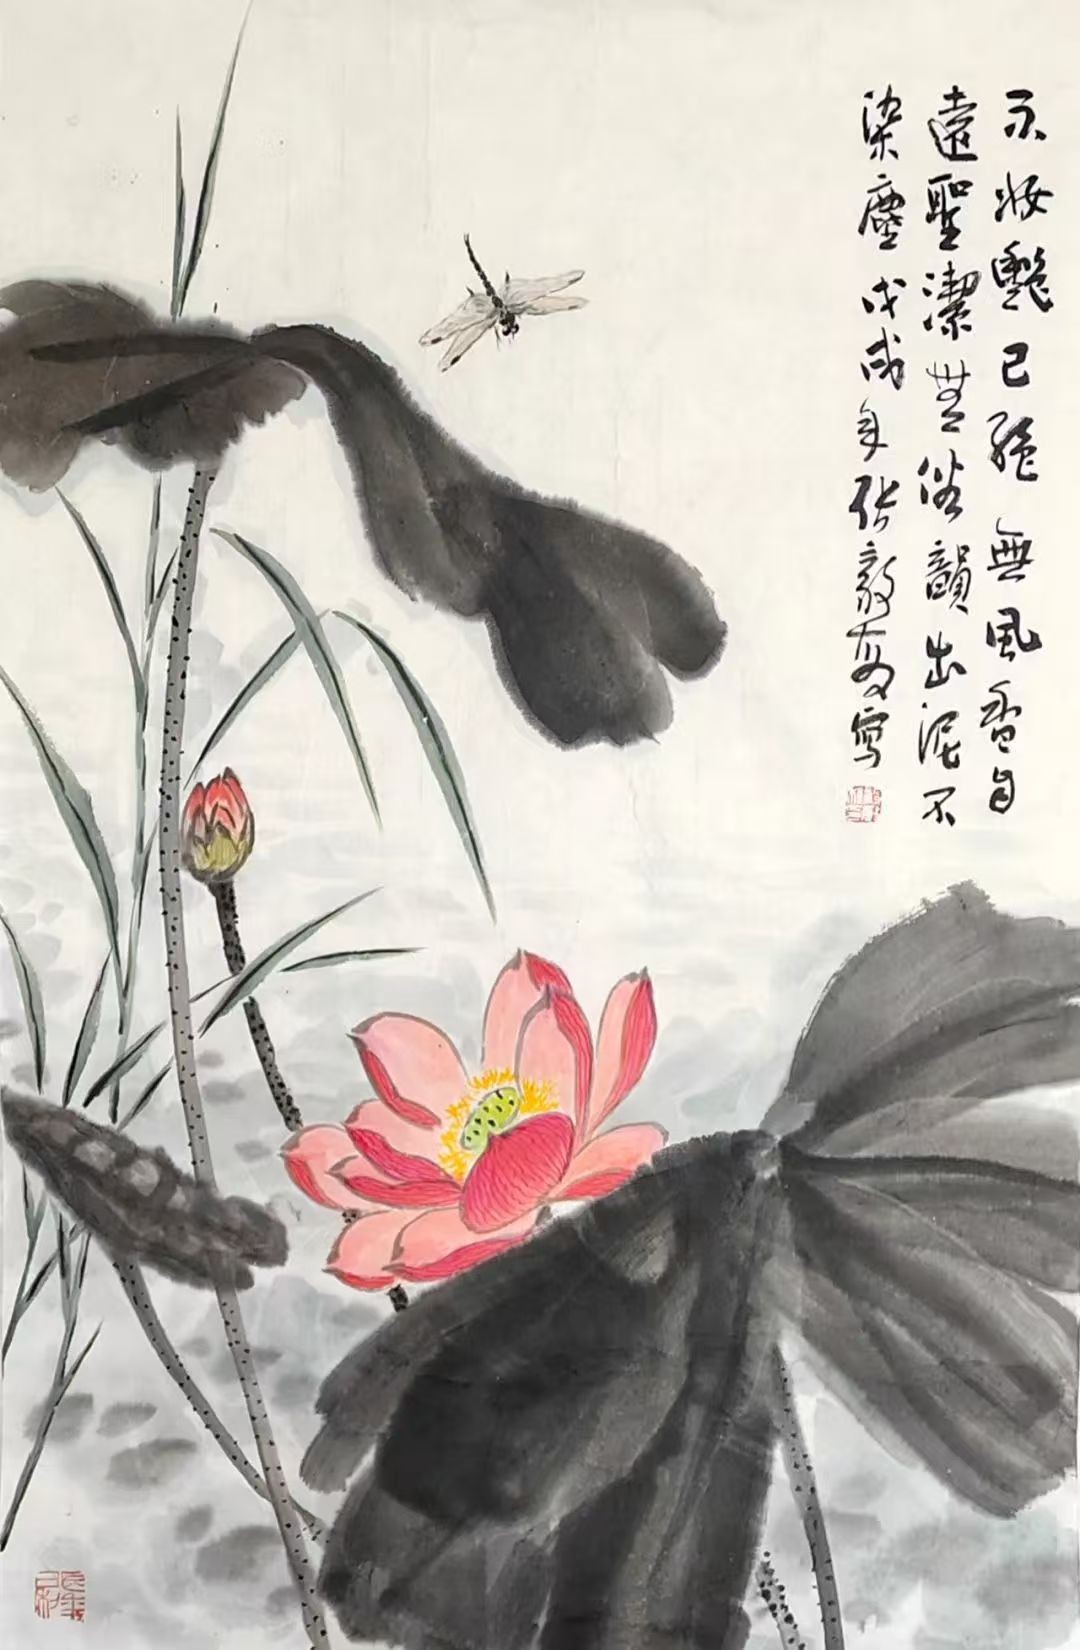 不妝艷已絕無風香自
遠聖潔無俗韻出泥不
染塵戊戌年張毅寫